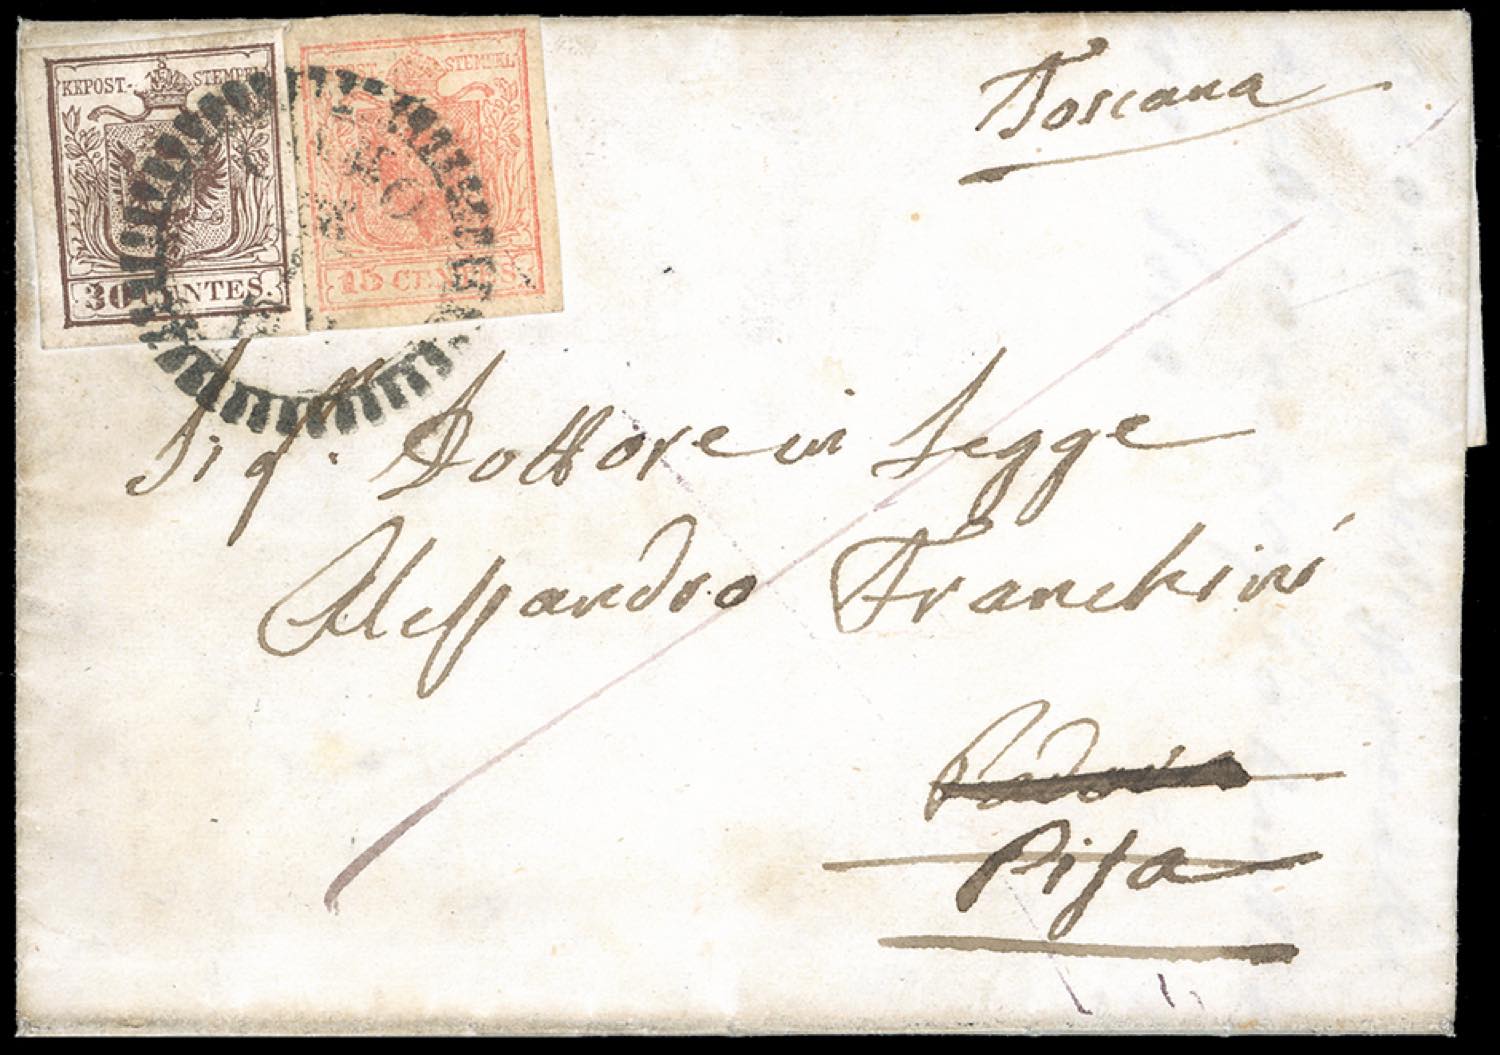 KKPOST-STEMPEL
30 CENTES.
POST-STEMPEL
15 CENTES.
Toscana
Sigr. Dottore in Legge
Alessandro Franchini
Padova
Pisa